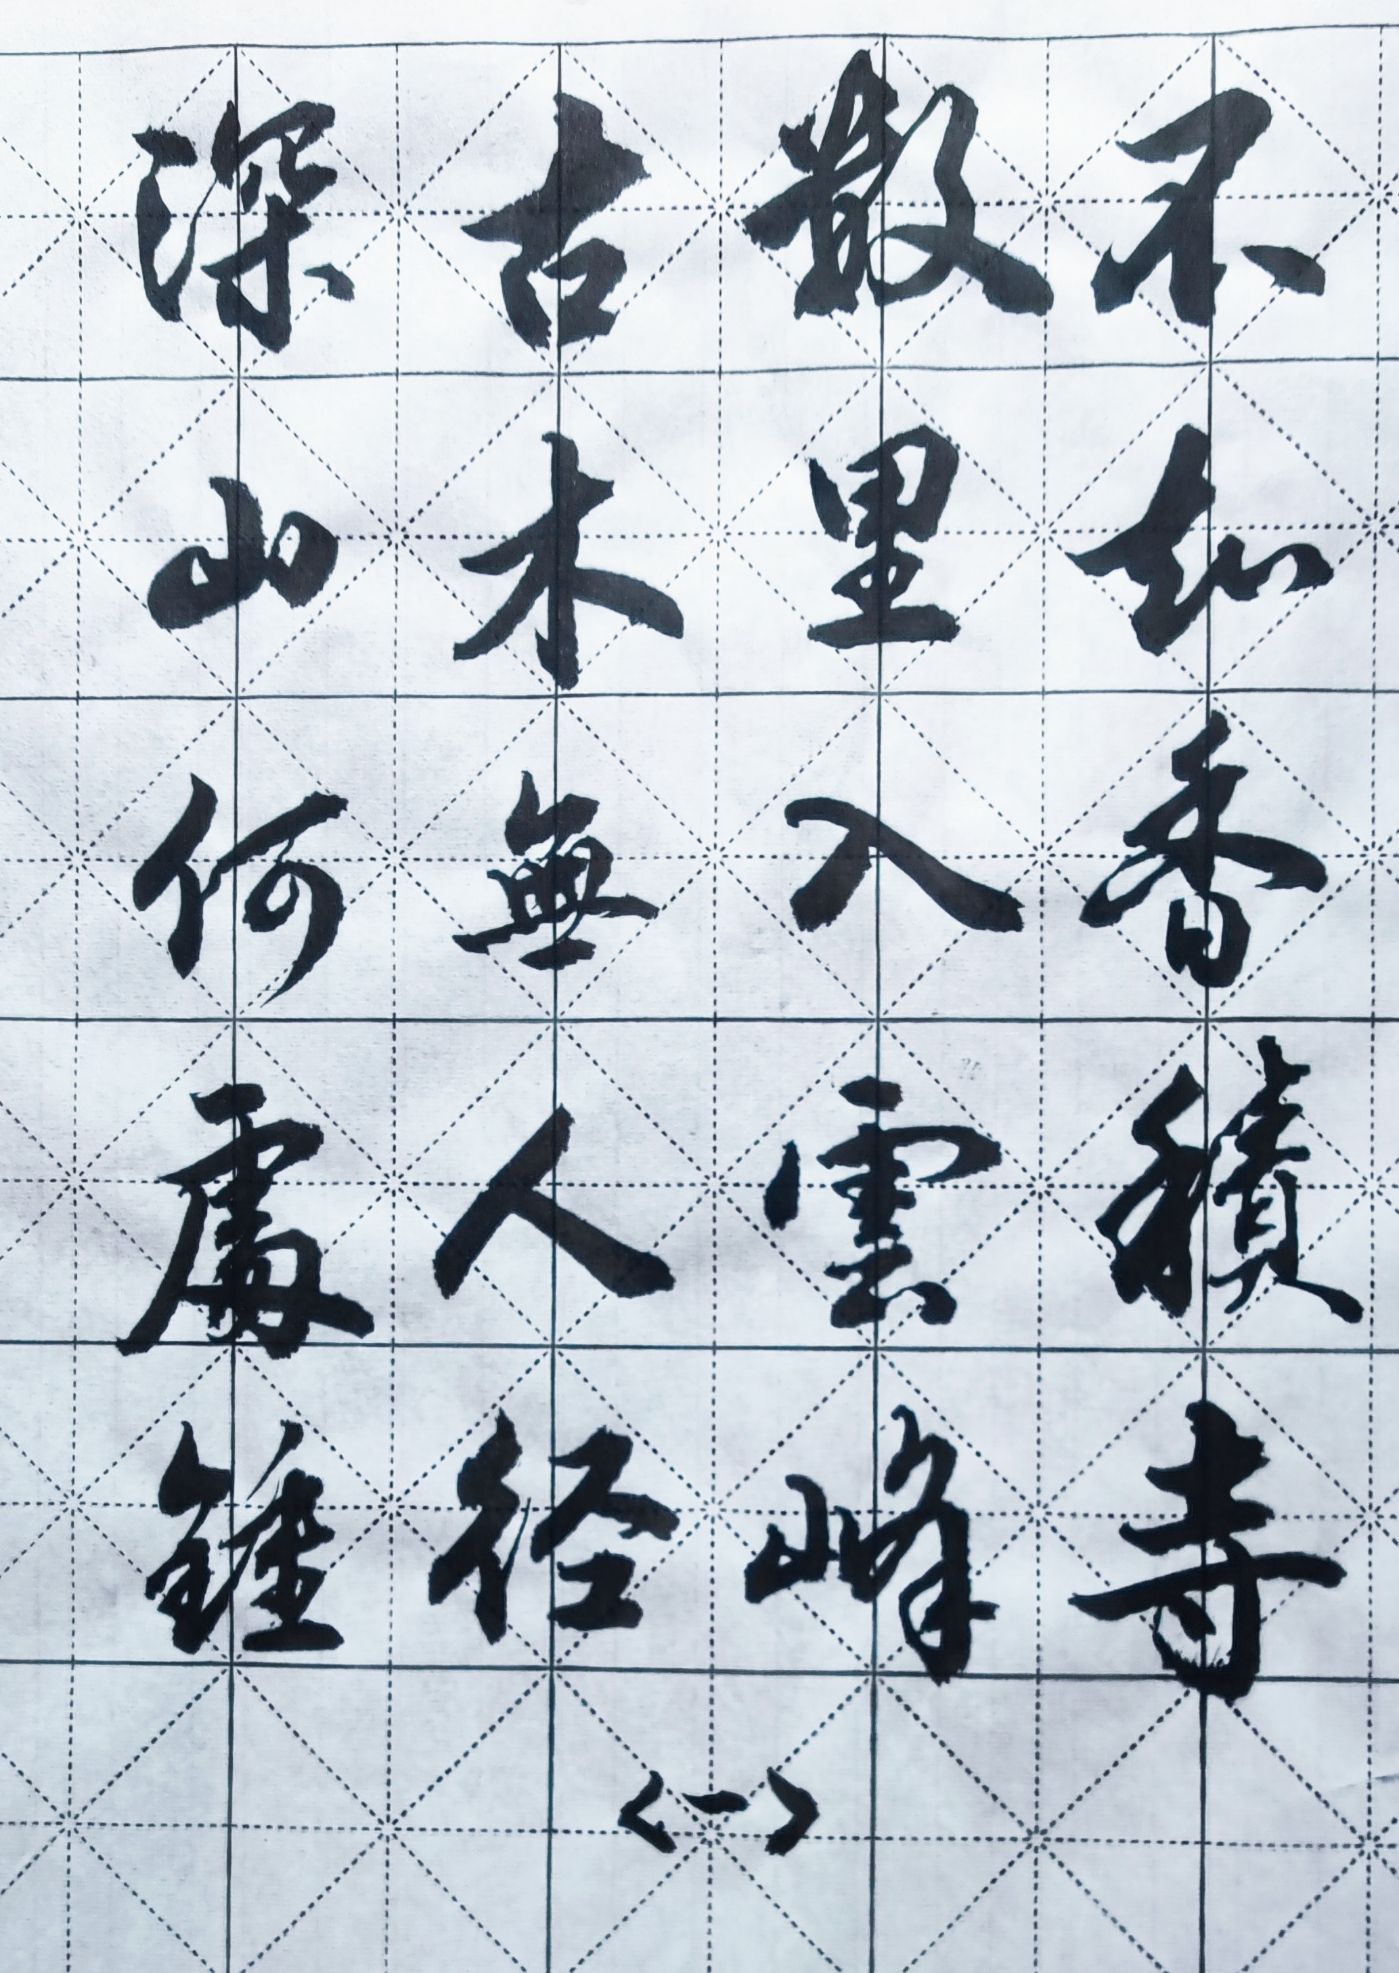 不知香積寺
數里入雲峰
古木無人径
深山何處鍾
〈一〉